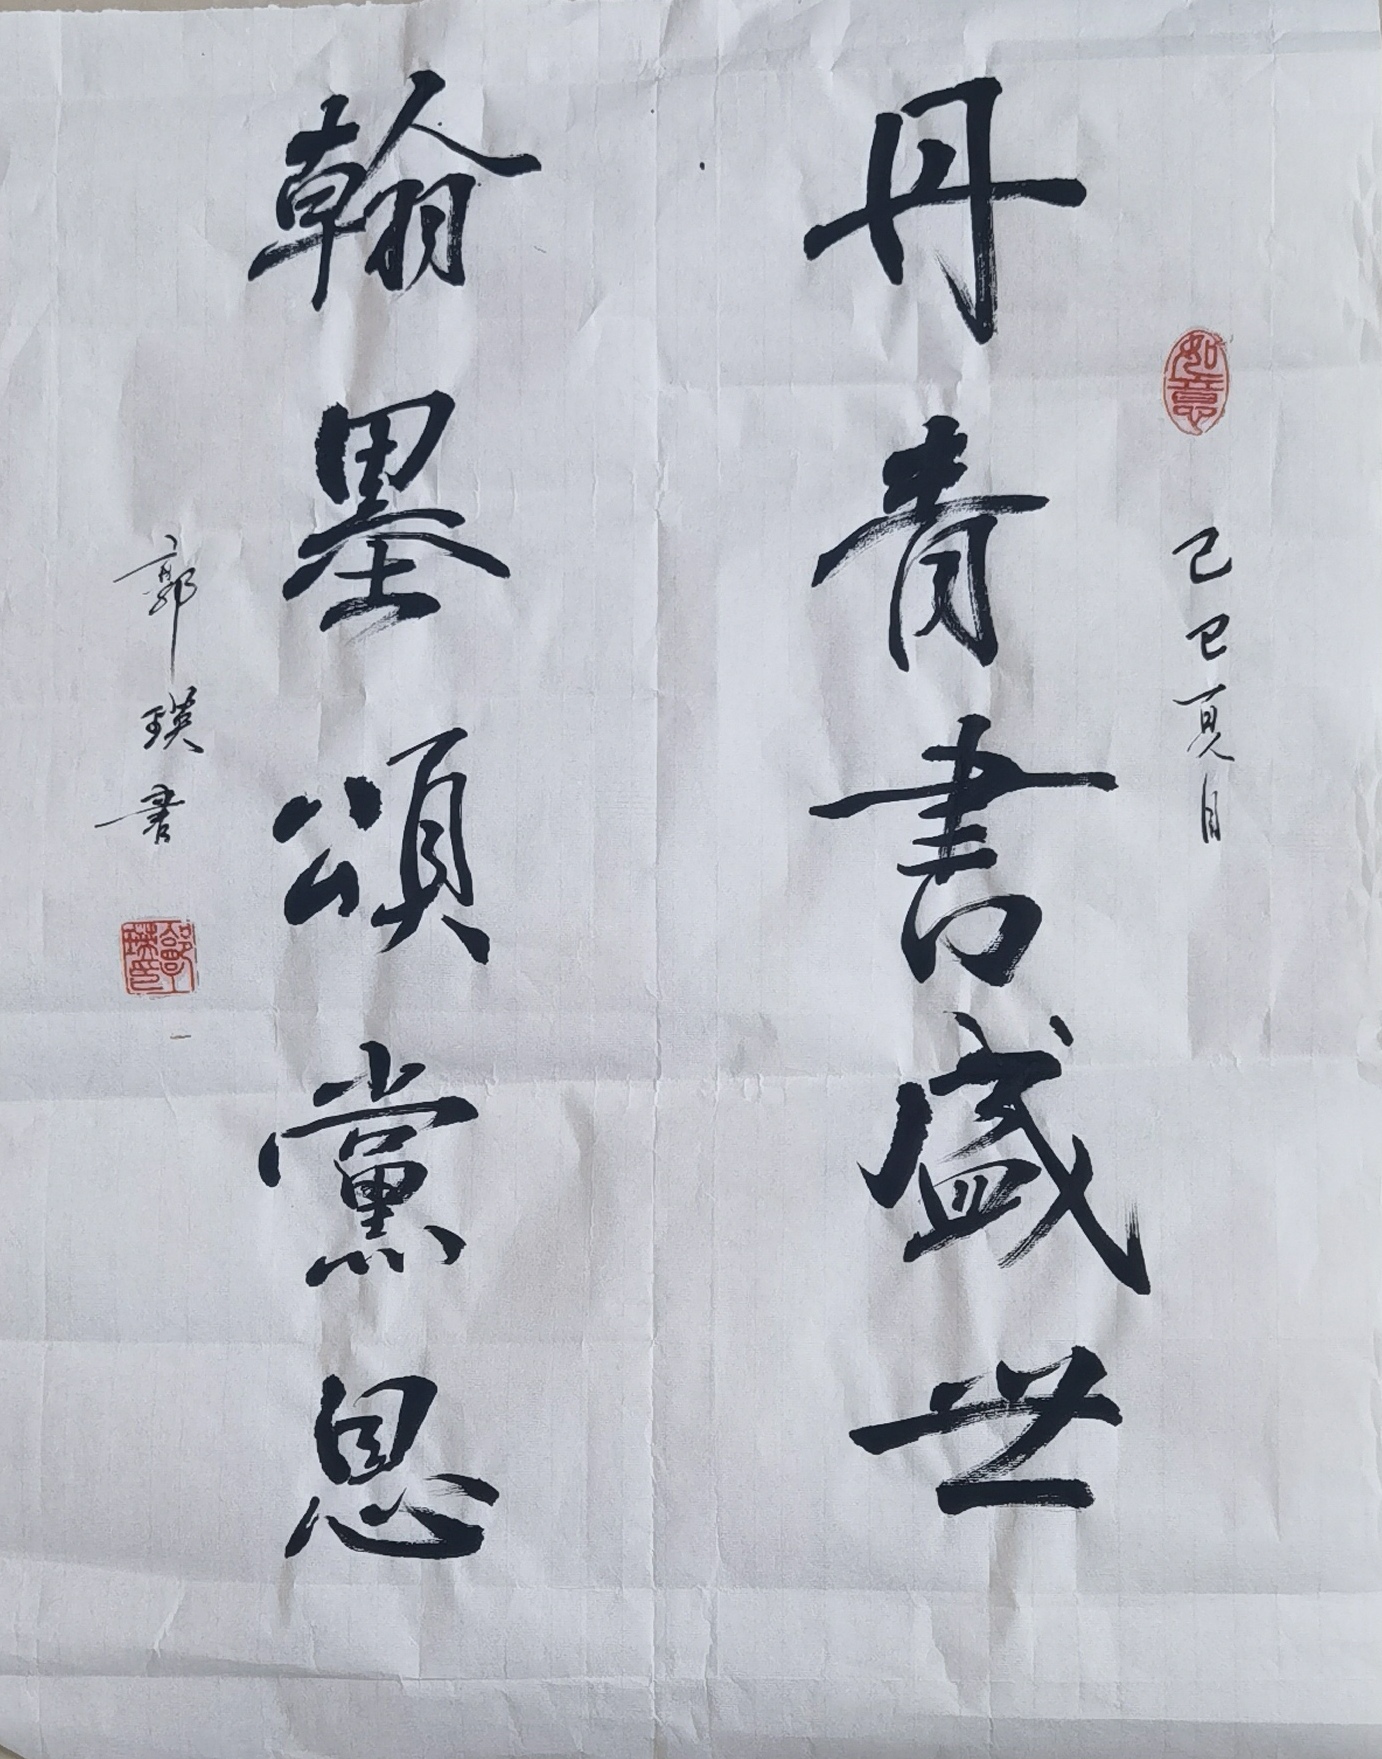 如意
己巳夏月
丹青書盛世
翰墨頌黨恩
郭瑛書